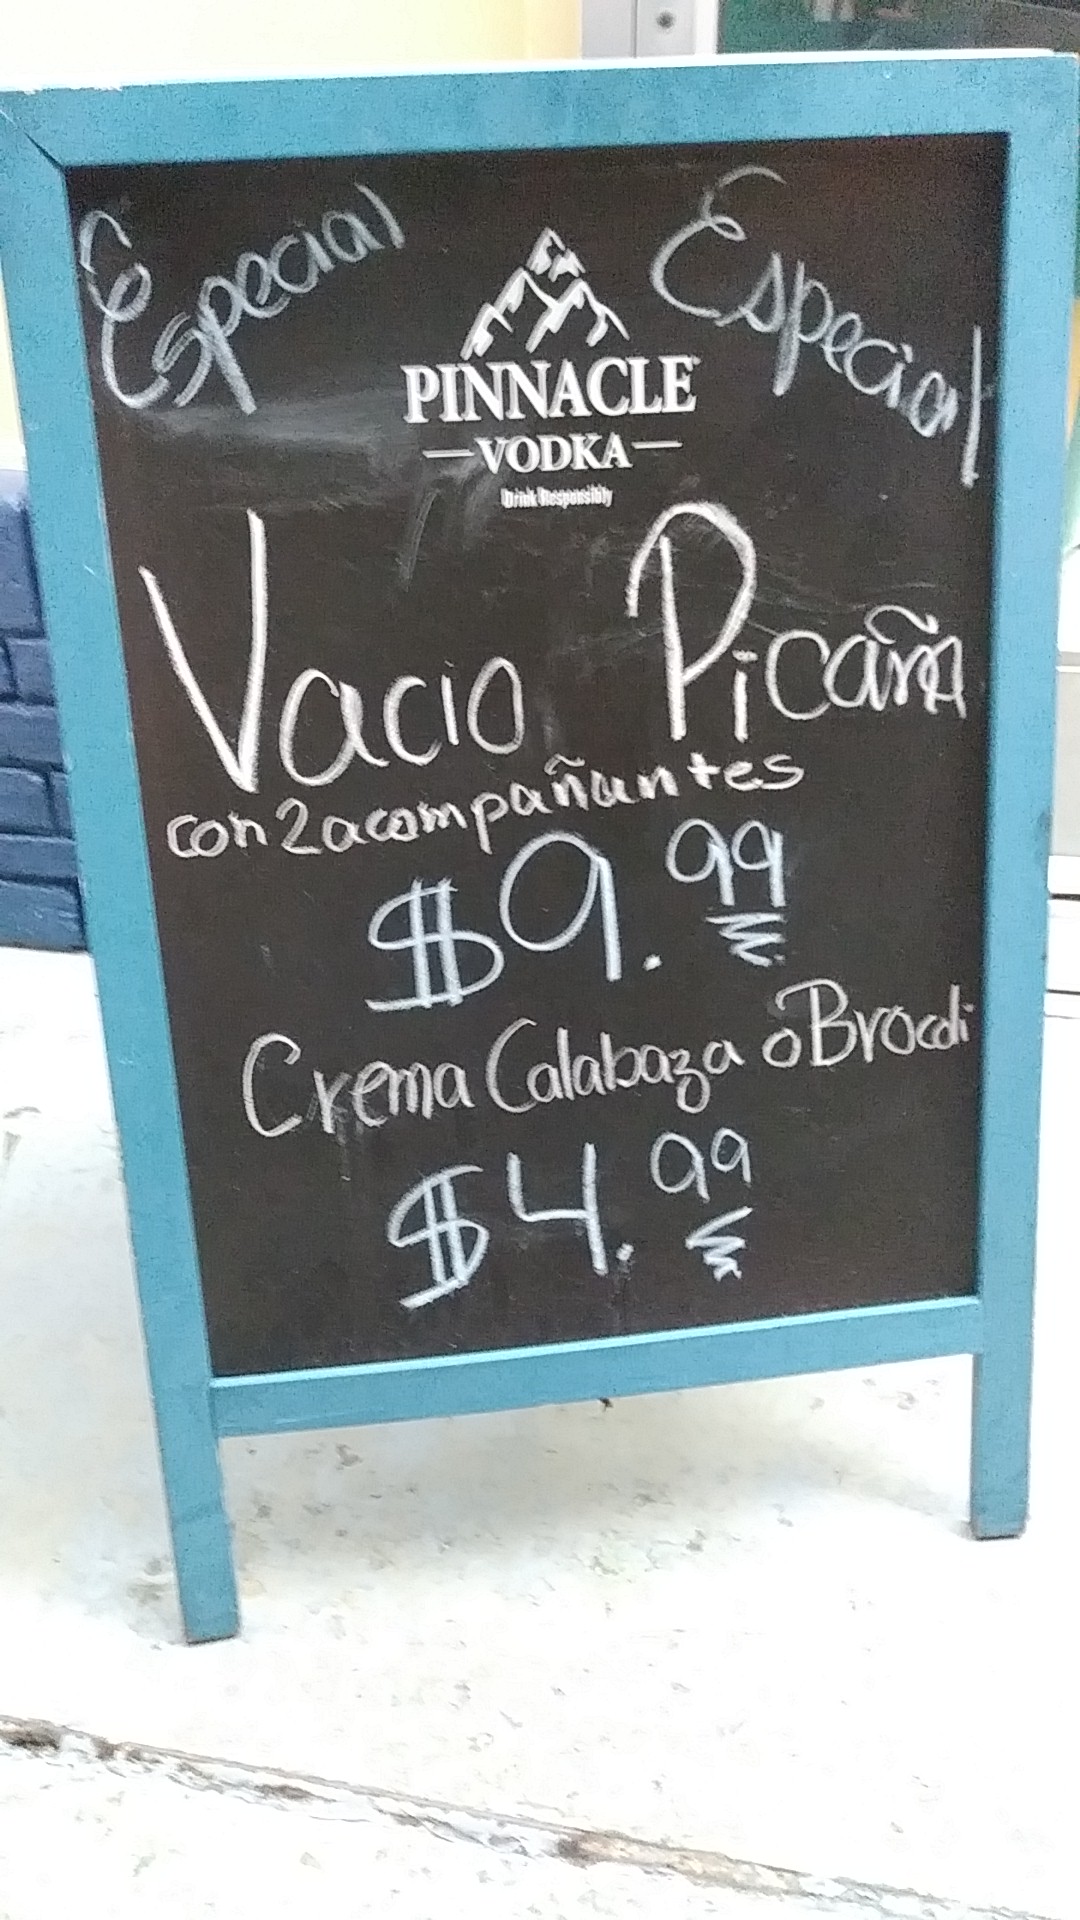 Especial
Especial
PINNACLE
VODKA
Drink Responsibly
Vacio Picaña
con 2 acompañantes
$9.99
Crema Calabaza o Brocoli
$4.99